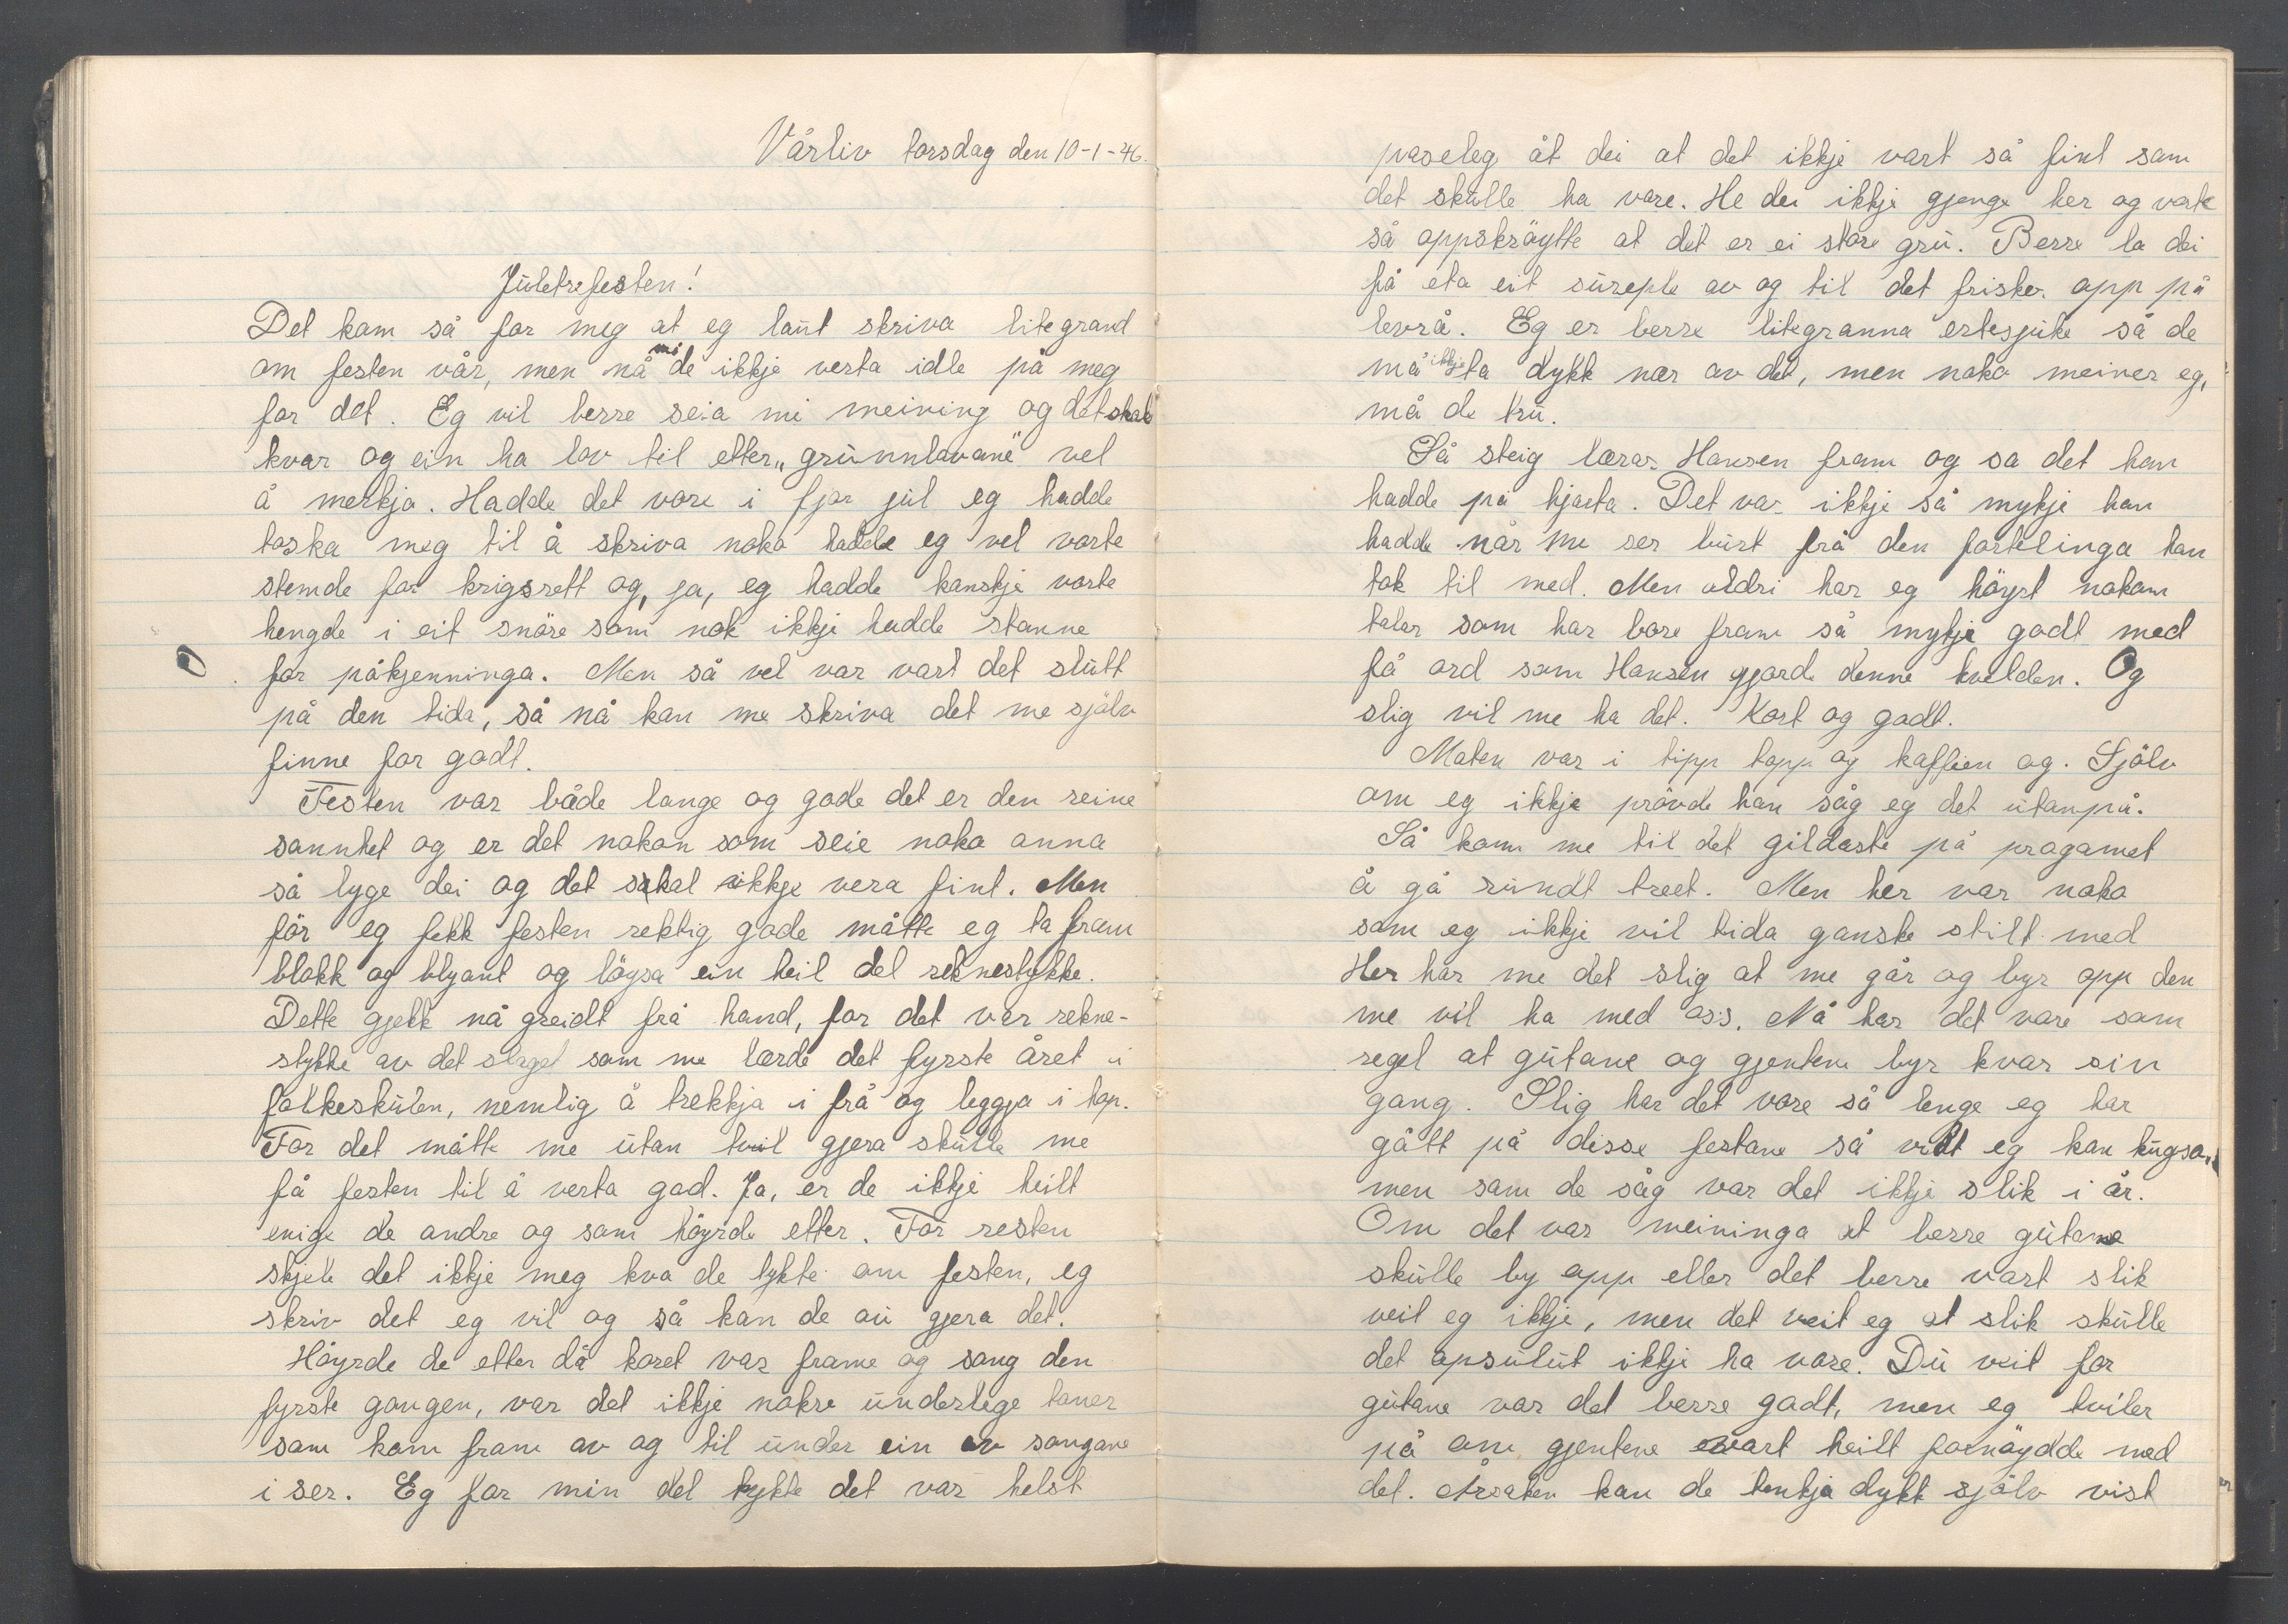 Vårliv torsdag den 10-1-46.
Juletrefesten!
Det kom så for meg at eg laut skriva litegrand
om festen vår, men nå må de ikkje verta idle på meg
for det. Eg vil berre seia mi meining og det skal
kvar og ein ha lov til etter „grunnlovane" vel
å merkja. Hadde det vore i fjor jul eg hadde
toska meg til å skriva noko hadde eg vel vorte
stemde for krigsrett og, ja, eg hadde kanskje vorte
hengde i eit snöre som nok ikkje hadde stanne
for påkjenninga. Men så vel var vart det slutt
på den tida, så nå kan me skriva det me sjölv
finne for godt.
Festen var både lange og gode det er den reine
sannhet og er det nokon som seie noko anna
så lyge dei og det skal ikkje vera fint. Men
för eg fekk festen rektig gode måtte eg ta fram
blokk og blyant og löysa ein heil del reknestykke.
Dette gjekk nå greidt frå hand, for det var rekne-
stykke av det slaget som me lærde det fyrste året i
folkeskulen, nemlig å trekkja i frå og leggja i hop.
For det måtte me utan tvil gjera skulle me
få festen til å verta god. Ja, er de ikkje heilt
enige de andre og som höyrde etter. For resten
skjele det ikkje meg kva de tykte om festen, eg
skriv det eg vil og så kan de au gjera det.
Höyrde de etter då koret var frame og song den
fyrste gongen, var det ikkje nokre underlege toner
som kom fram av og til under ein av songane
i ser. Eg for min del tykte det var helst
paseleg åt dei at det ikkje vart så fint som
det skulle ha vore. He dei ikkje gjenge her og vorte
så oppskröytte at det er ei store gru. Berre la dei
få eta eit sureple av og til det frisker opp på
levrå. Eg er berre litegranna ertesjuke så de
må ikkje ta dykk nær av det, men noko meiner eg,
må de tru.
Så steig lærar Hansen fram og sa det han
hadde på hjarta. Det var ikkje så mykje han
hadde når me ser burt frå den fortelinga han
tok til med. Men aldri har eg höyrt nokom
talar som har bore fram så mykje godt med
få ord som Hansen gjorde denne kvelden. Og
slig vil me ha det. Kort og godt.
Maten var i tipp topp og kaffien og. Sjölv
om eg ikkje prövde han såg eg det utanpå.
Så kom me til det gildaste på progamet
å gå rundt treet. Men her var noko
som eg ikkje vil tida ganske stilt med
Her har me det slig at me går og byr opp den
me vil ha med oss. Nå har det vore som
regel at gutane og gjentene byr kvar sin
gong. Slig har det vore så lenge eg har
gått på disse festane så vidt eg kan hugsa,
men som de såg var det ikkje slik i år.
Om det var meininga at berre gutane
skulle by opp eller det berre vart slik
veit eg ikkje, men det veit eg at slik skulle
det apsulut ikkje ha vore. Du veit for
gutane var det berre godt, men eg tviler
på om gjentene vart heilt fornöydde med
det. Årsaken kan de tenkja dykk sjölv vist